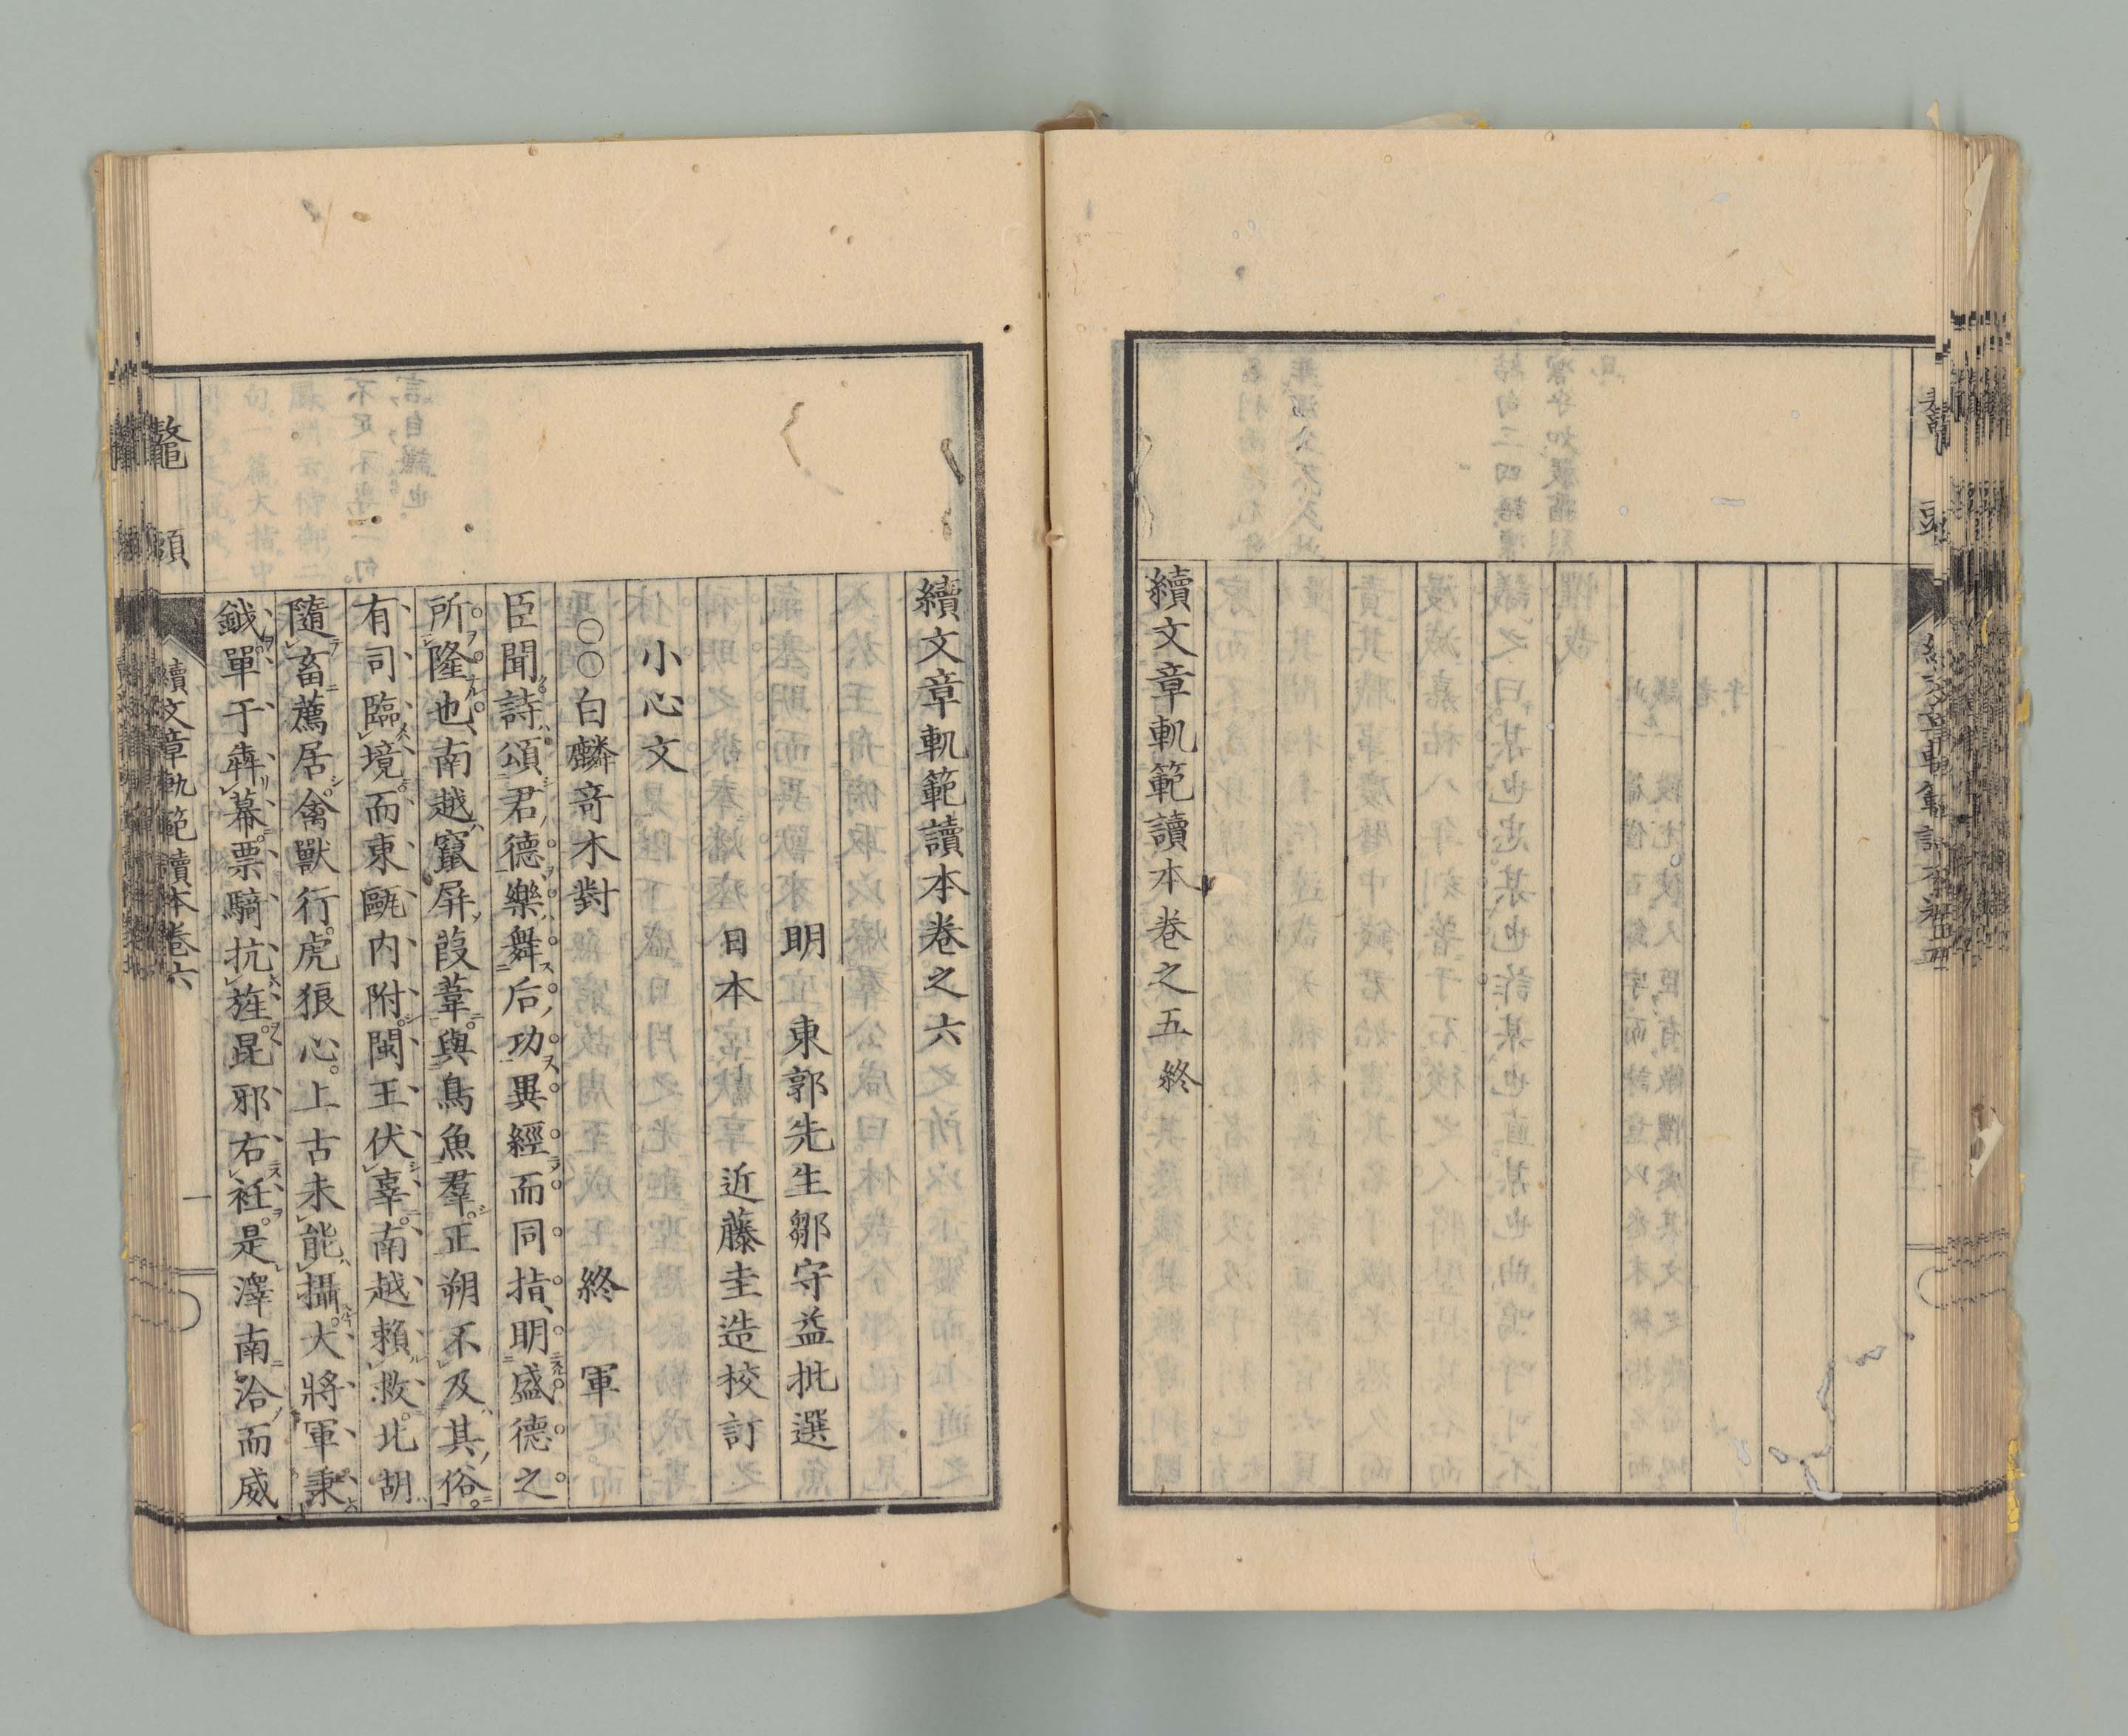 續文章軌範讀本卷之五終
續文章軌範讀本卷之六
明 東郭先生鄒守益批選
日本 近藤圭造校訂
小心文
○○○白麟奇木對 終軍
臣聞詩頌君德樂舞后功異經而同指明盛德之
所隆也南越竄屏葭葦與鳥魚羣正朔不及其俗
有司臨境而東甌內附閩王伏辜南越賴救北胡
隨畜薦居禽獸行虎狼心上古未能攝大將軍秉
鉞單于犇幕票騎抗旌昆邪右衽是澤南洽而威
鼇頭 續文章軌範讀本卷六 一